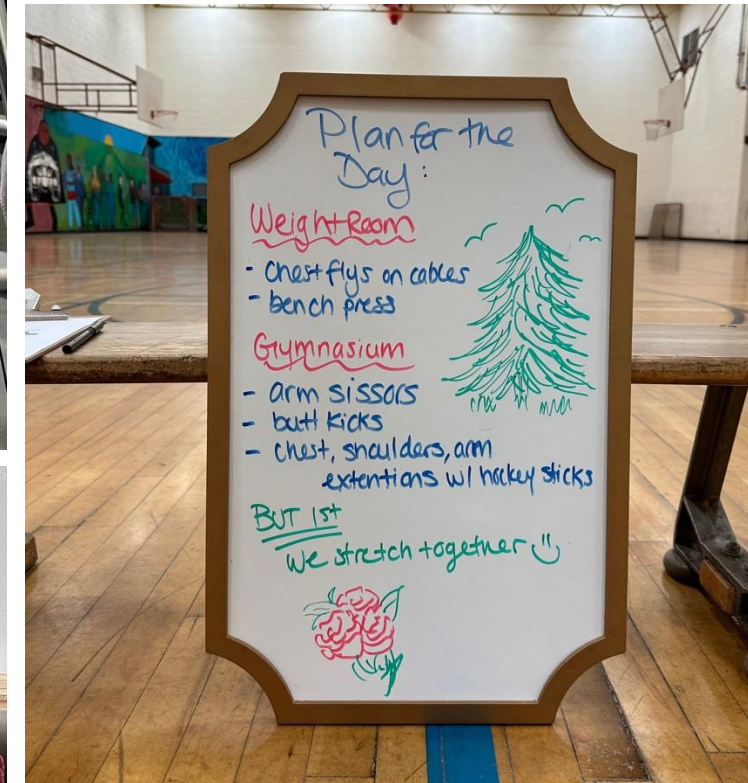 Plan for the
Day:
Weight Room
- chest flys on cables
- bench press
Gymnasium
- arm sissors
- butt kicks
- chest, shoulders, arm
extentions w/ hockey sticks
BUT 1st
We stretch together